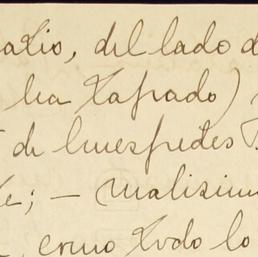 atio, del lado d
ha tapado)
de huespedes
te; — malisim
como todo lo